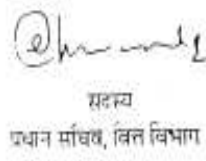 सदस्य
प्रधान सचिव, वित्त विभाग